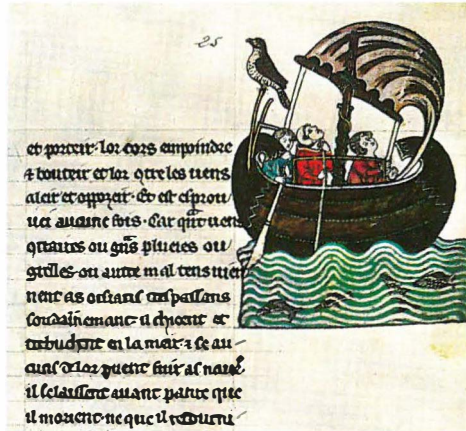 25
et porteir. lor cors empoindre
⁊ bouteir et lor qtre les uens
aleir et opposeir. Et est esprou
uei aucune fois. Car qnt uens
qtraires ou gns plueies ou
griesles ou autre mal tens uien
nent as oisians trespassans
soudainemant. il chieent et
trebuchent en la meir ⁊ se au
cuns de lor puent fuir as naues
il se laissent auant panre que
il morient. ne que il